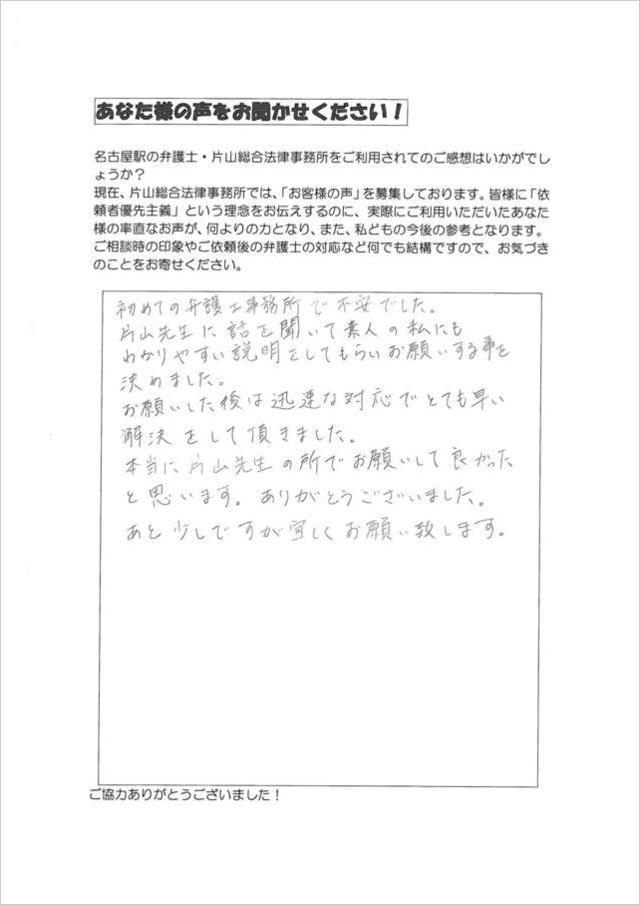 あなた様の声をお聞かせください！
名古屋駅の弁護士・片山総合法律事務所をご利用されてのご感想はいかがでし
ょうか？
現在、片山総合法律事務所では、「お客様の声」を募集しております。皆様に「依
頼者優先主義」という理念をお伝えするのに、実際にご利用いただいたあなた
様の率直なお声が、何よりの力となり、また、私どもの今後の参考となります。
ご相談時の印象やご依頼後の弁護士の対応など何でも結構ですので、お気づき
のことをお寄せください。
初めての弁護士事務所で不安でした。
片山先生に話を聞いて素人の私にも
わかりやすい説明をしてもらいお願いする事を
決めました。
お願いした後は迅速な対応でとても早い
解決をして頂きました。
本当に片山先生の所でお願いして良かった
と思います。ありがとうございました。
あと少しですが宜しくお願い致します。
ご協力ありがとうございました！